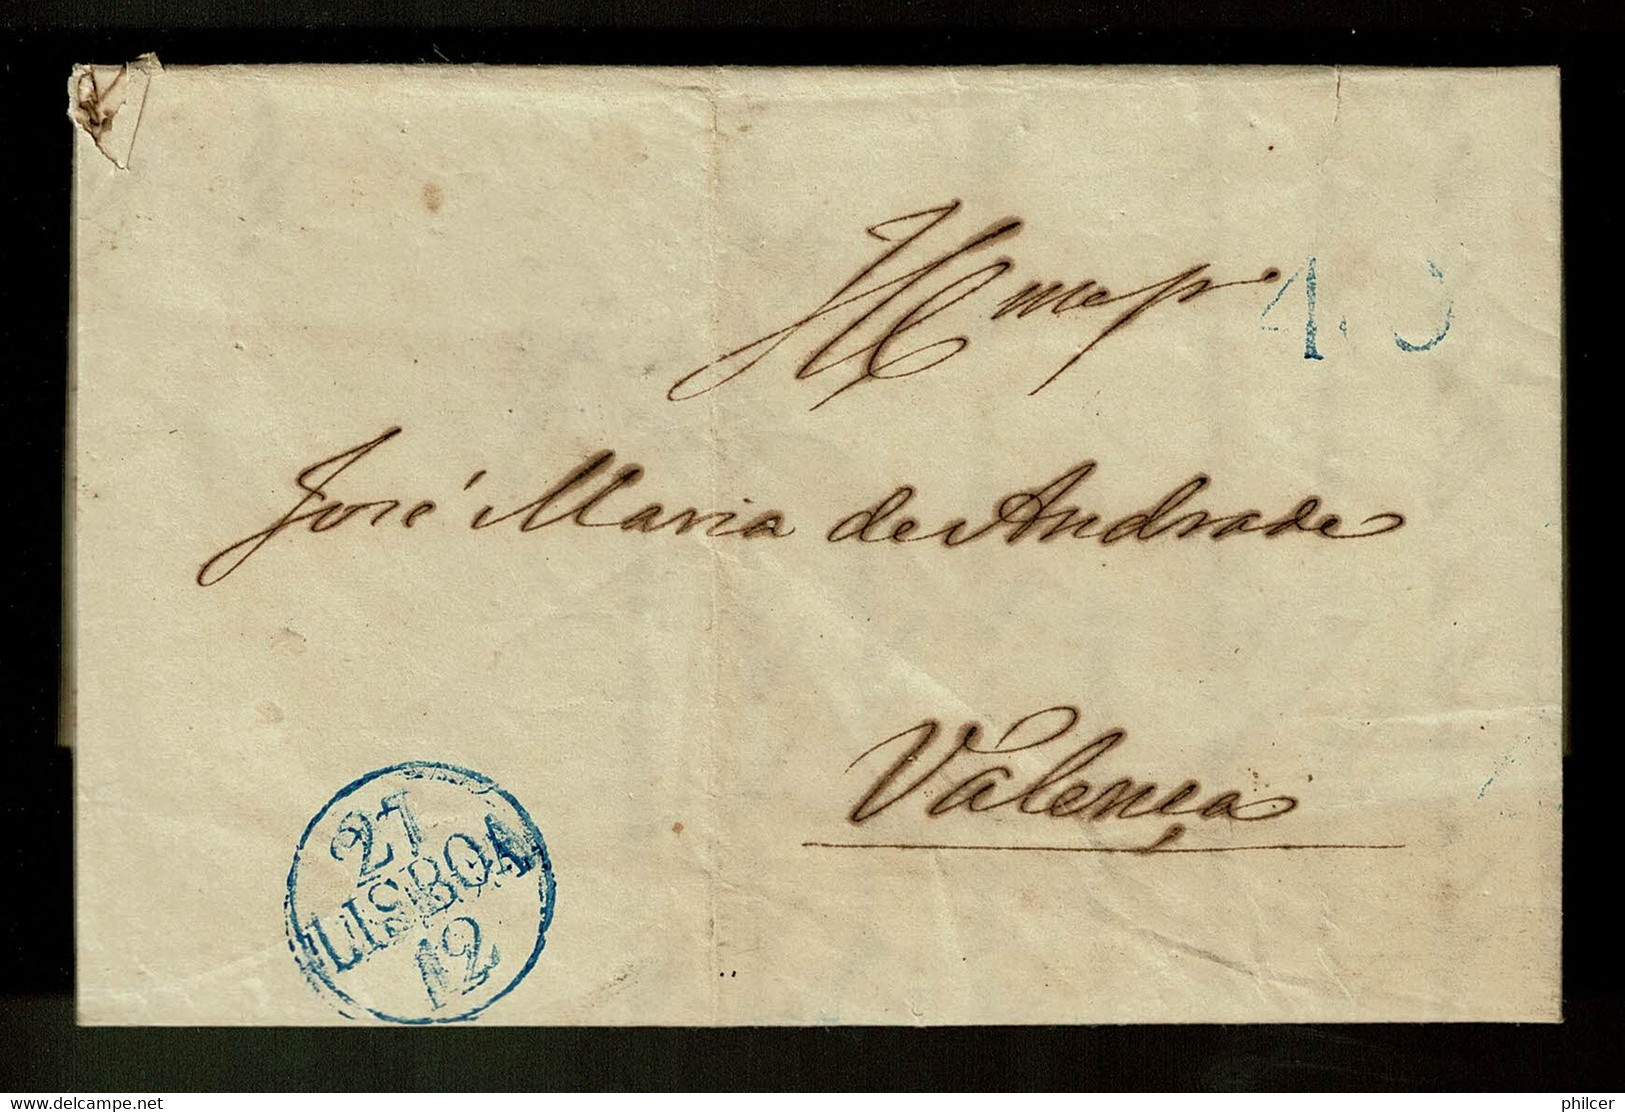 José Maria de Andrade
Valença
27
LISBOA
12
www.delcampe.net
philcer